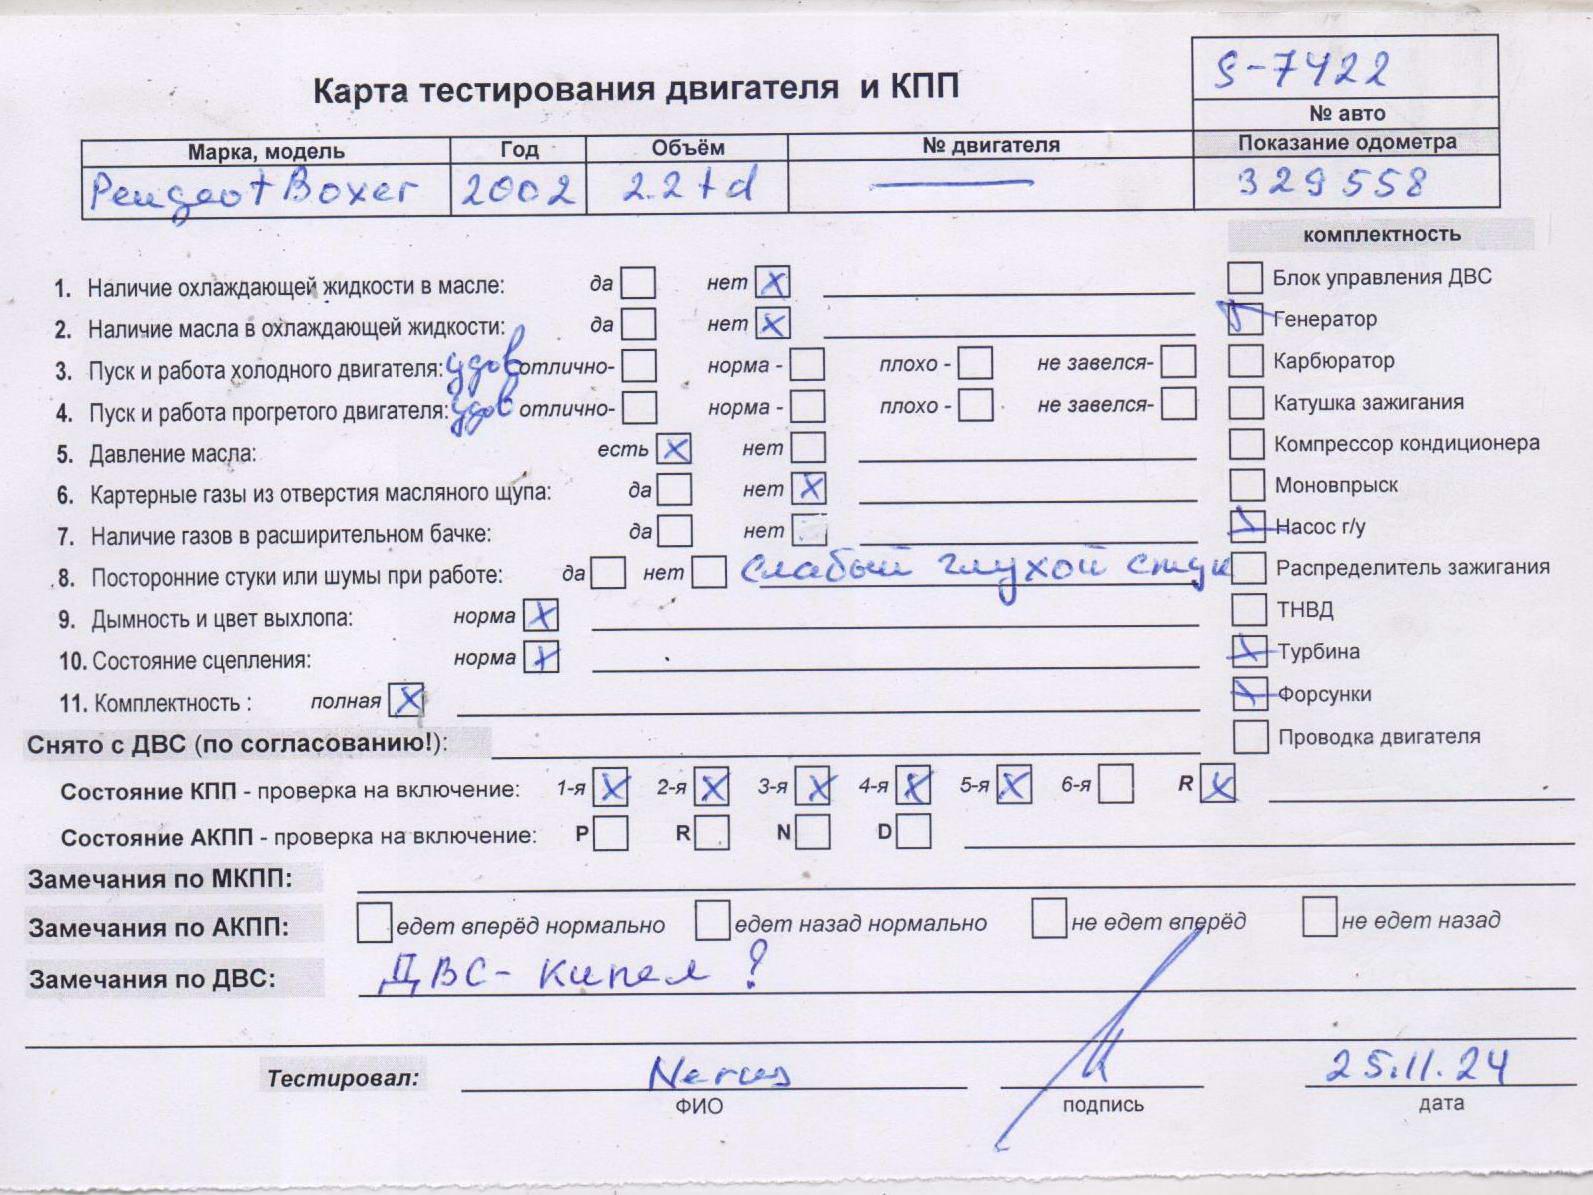 S-7422
Карта тестирования двигателя и КПП
№ авто
Марка, модель Год Объём № двигателя Показание одометра
Peugeot Boxer 2002 2.2td — 329558
комплектность
1. Наличие охлаждающей жидкости в масле: да нет X
Блок управления ДВС
2. Наличие масла в охлаждающей жидкости: да нет X
Генератор
3. Пуск и работа холодного двигателя: удов отлично- норма - плохо - не завелся-
Карбюратор
4. Пуск и работа прогретого двигателя: удов отлично- норма - плохо - не завелся-
Катушка зажигания
5. Давление масла: есть X нет
Компрессор кондиционера
6. Картерные газы из отверстия масляного щупа: да нет X
Моновпрыск
7. Наличие газов в расширительном бачке: да нет
Насос г/у
8. Посторонние стуки или шумы при работе: да нет слабый глухой стук
Распределитель зажигания
9. Дымность и цвет выхлопа: норма X
ТНВД
10. Состояние сцепления: норма X
Турбина
11. Комплектность : полная X
Форсунки
Снято с ДВС (по согласованию!):
Проводка двигателя
Состояние КПП - проверка на включение: 1-я X 2-я X 3-я X 4-я X 5-я X 6-я R X
Состояние АКПП - проверка на включение: P R N D
Замечания по МКПП:
Замечания по АКПП: едет вперёд нормально едет назад нормально не едет вперёд не едет назад
Замечания по ДВС: ДВС - кипел ?
Тестировал: 25.11.24
ФИО подпись дата